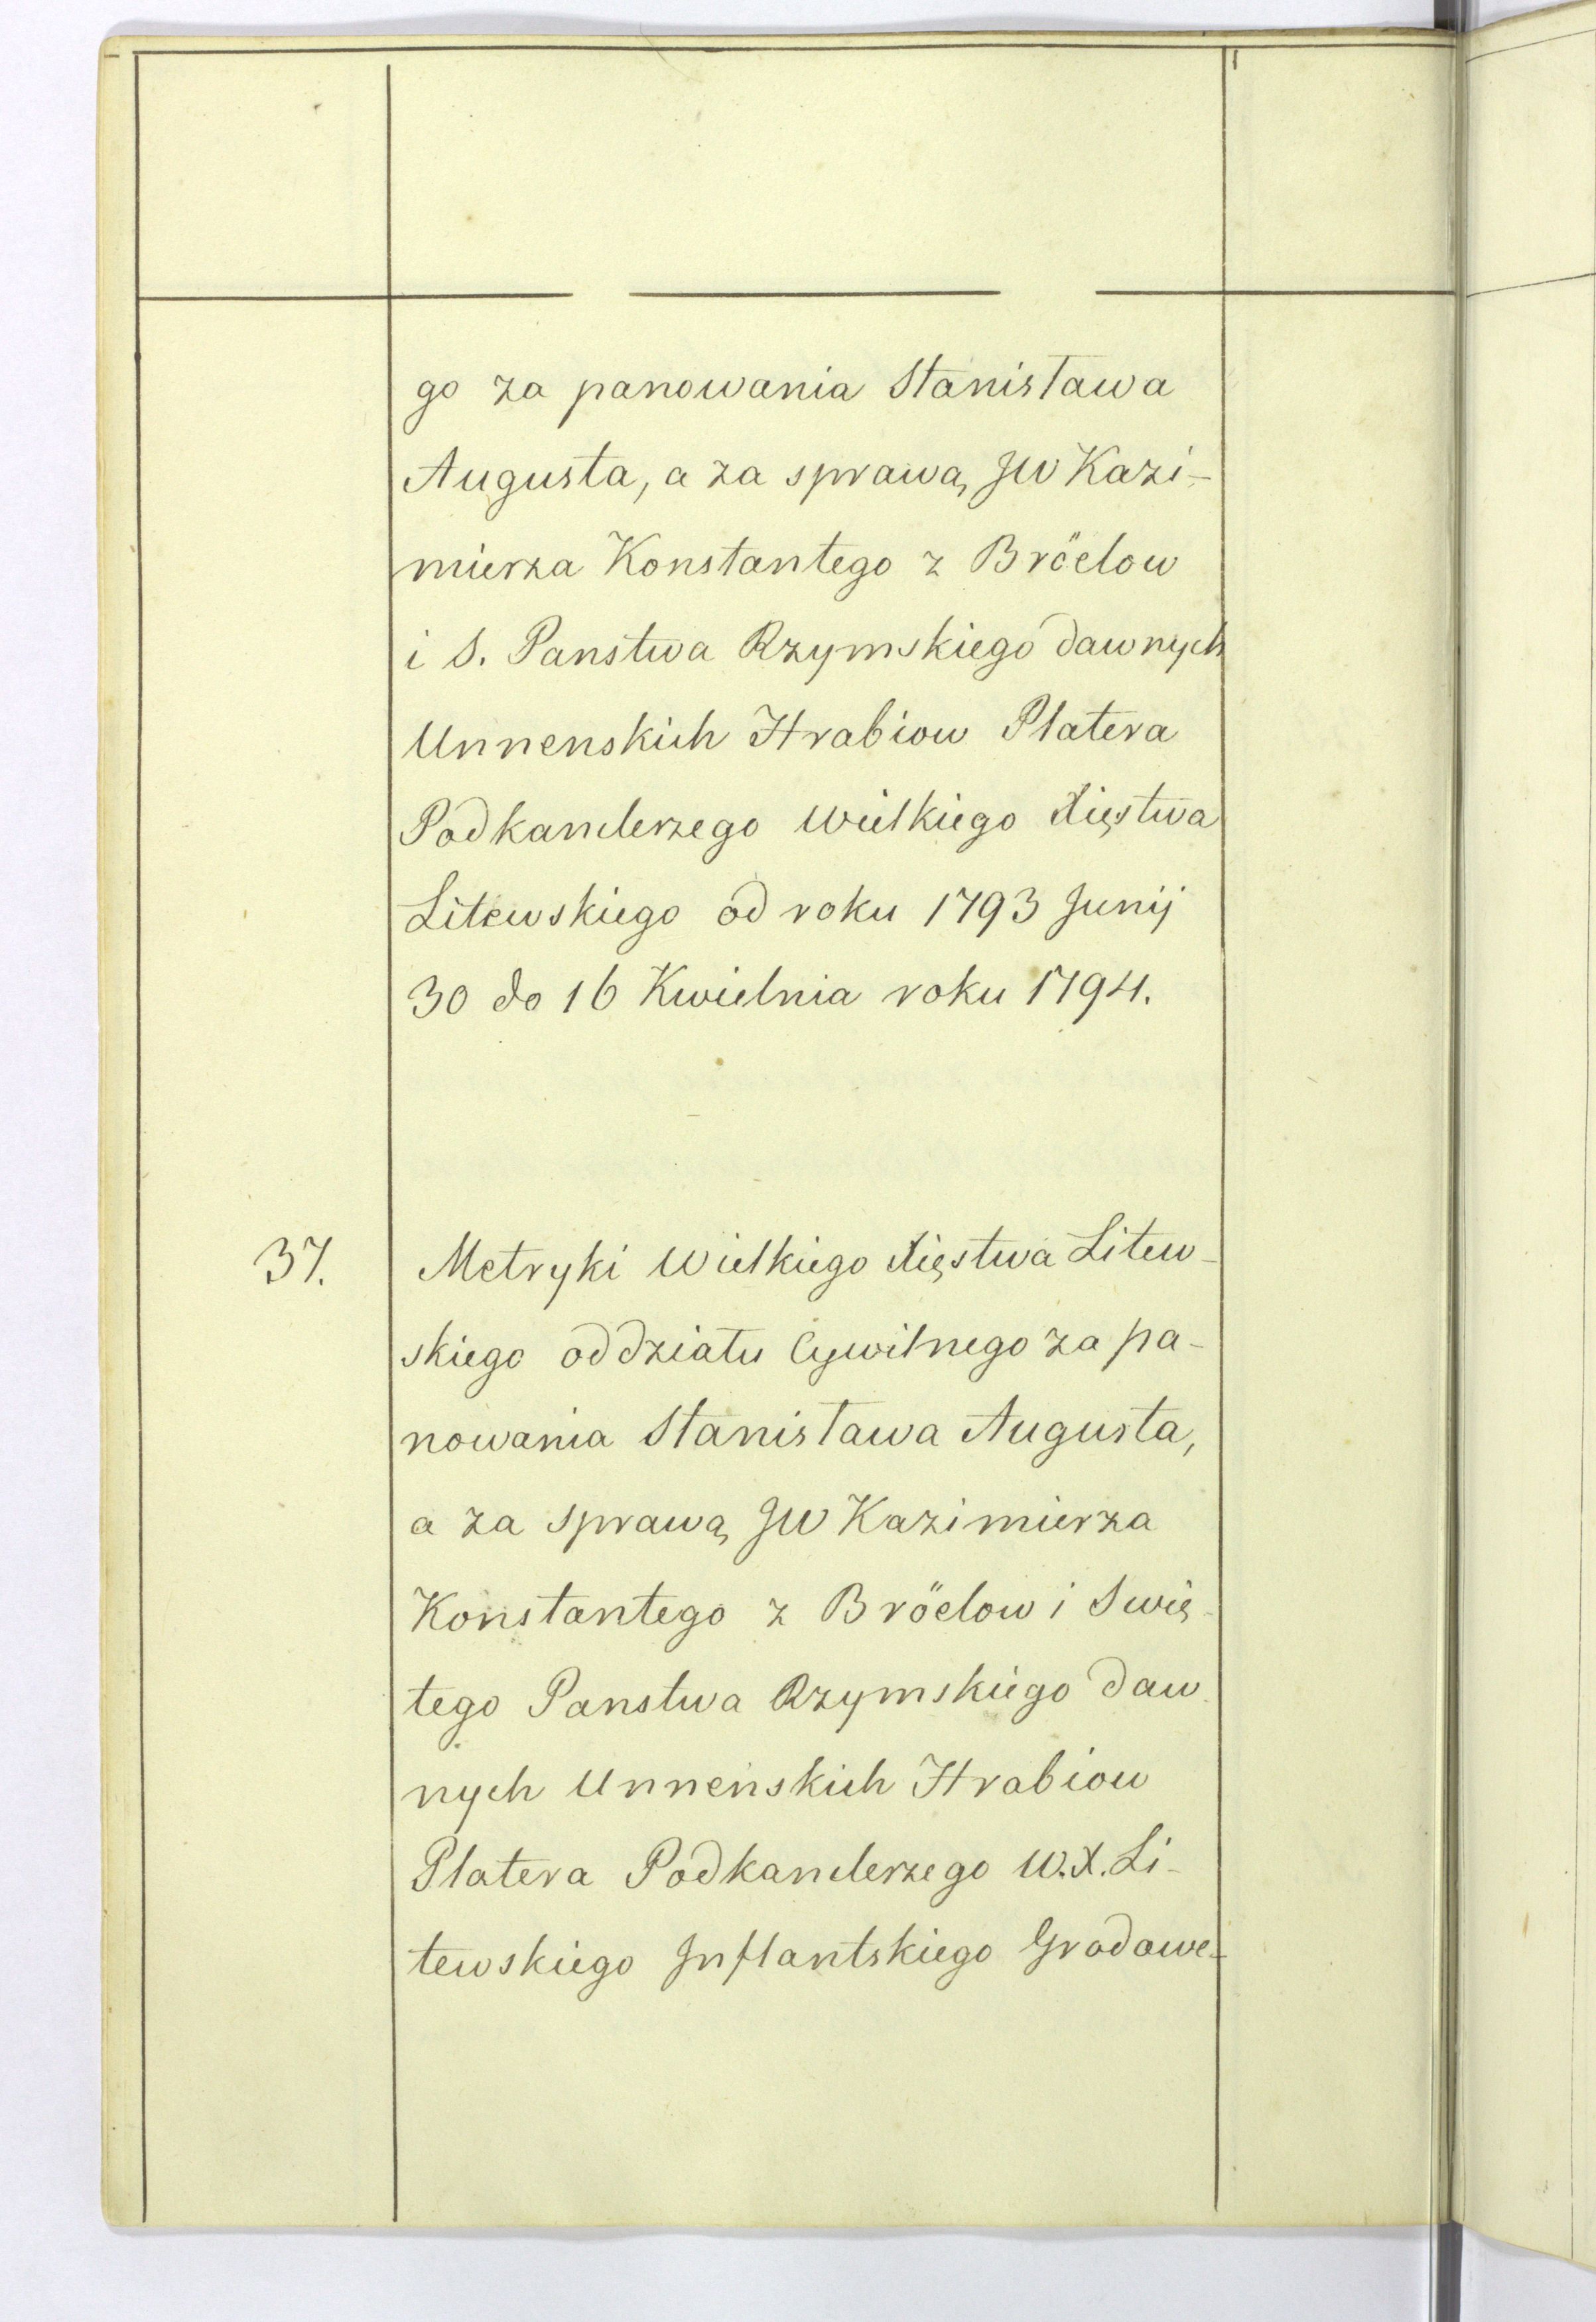 go za panowania Stanisława
Augusta, a za sprawą JW Kazi-
mierza Konstantego z Bröelow
i S. Panstwa Rzymskiego dawnych
Unnenskich Hrabiow Platera
Podkanclerzego Wielkiego Xięstwa
Litewskiego od roku 1793 Junij
30 do 16 Kwietnia roku 1794.
37. Metryki Wielkiego Xięstwa Litew-
skiego oddziału Cywilnego za pa-
nowania Stanisława Augusta,
a za sprawą JW Kazimierza
Konstantego z Bröelow i Swię-
tego Panstwa Rzymskiego daw-
nych Unnenskich Hrabiow
Platera Podkanclerzego W.X. Li-
tewskiego Inflantskiego Grodowe-